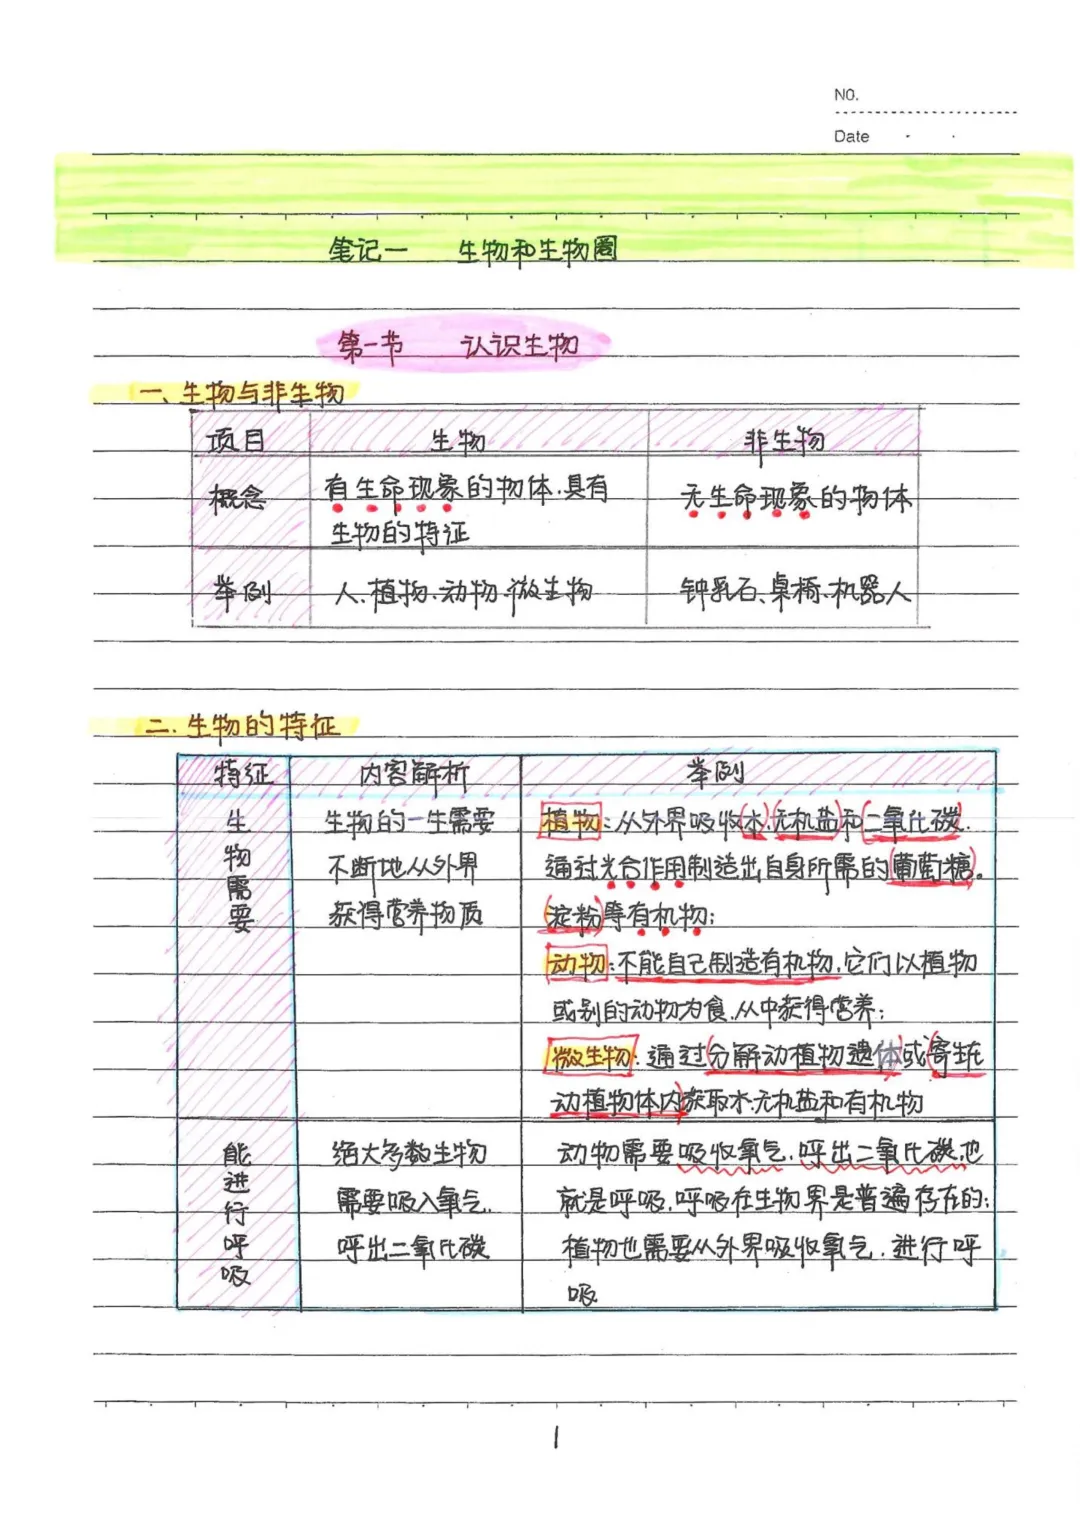 NO.
Date
笔记一 生物和生物圈
第一节 认识生物
一、生物与非生物
项目 生物 非生物
概念 有生命现象的物体、具有 无生命现象的物体
生物的特征
举例 人、植物、动物、微生物 钟乳石、桌椅、机器人
二、生物的特征
特征 内容解析 举例
生物需要
生物的一生需要
不断地从外界
获得营养物质
植物:从外界吸收(水)、(无机盐)和(二氧化碳),
通过光合作用制造出自身所需的(葡萄糖)。
(淀粉)等有机物;
动物:不能自己制造有机物,它们以植物
或别的动物为食,从中获得营养;
微生物:通过(分解动植物遗体)或(寄生在
动植物体内)获取水、无机盐和有机物
能进行呼吸
绝大多数生物
需要吸入氧气,
呼出二氧化碳
动物需要吸收氧气,呼出二氧化碳,也
就是呼吸,呼吸在生物界是普遍存在的;
植物也需要从外界吸收氧气,进行呼
吸
1